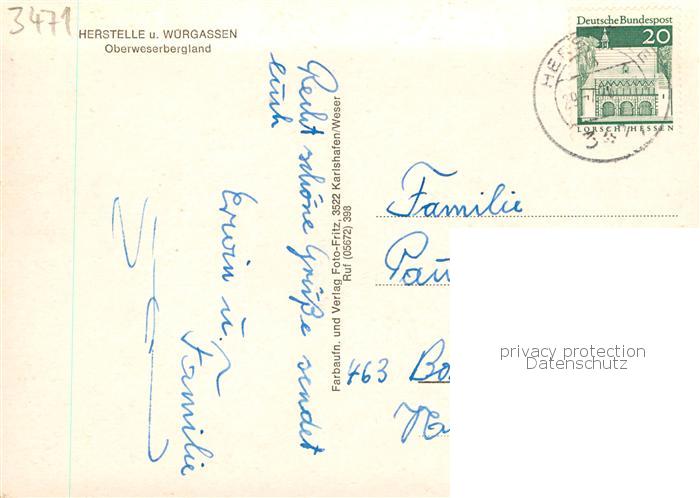 3471
HERSTELLE u. WÜRGASSEN
Oberweserbergland
Deutsche Bundespost
20
LORSCH/HESSEN
Recht schöne Grüße sendet
Euch
Erwin u.
Familie
Farbaufn. und Verlag Foto-Fritz, 3522 Karlshafen/Weser
Ruf (05672) 398
Familie
Pau
463 Bo
privacy protection
Datenschutz